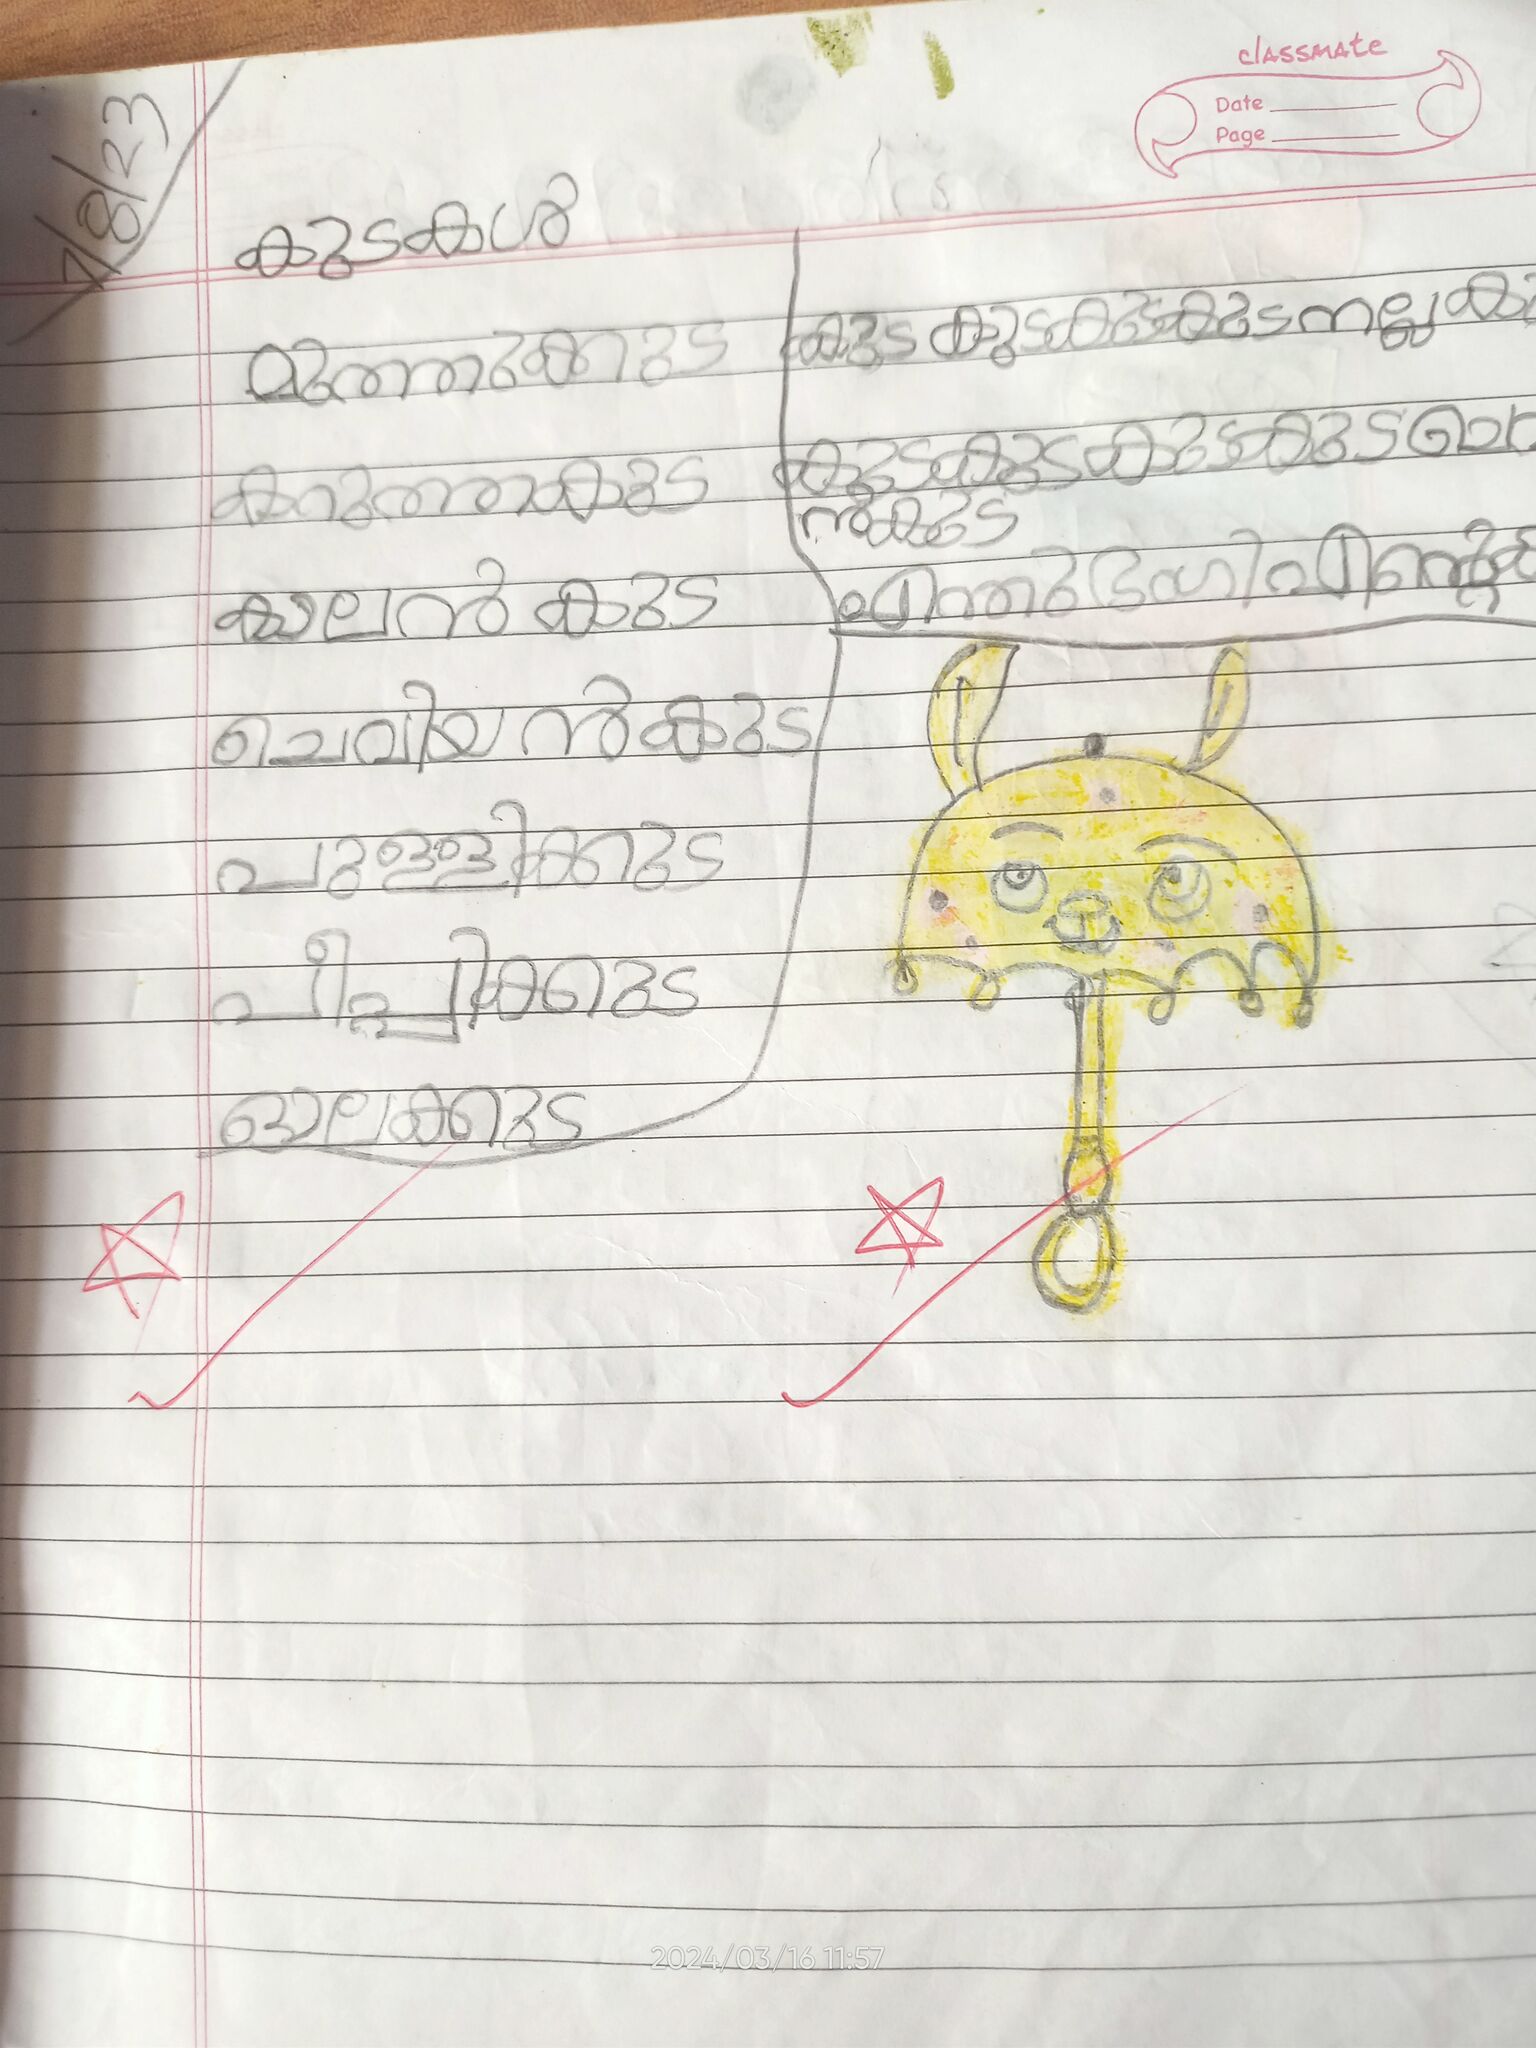 classmate
Date
Page
7/8/23
കുടകൾ
മുത്തുക്കുട
കറുത്തകുട
കാലൻ കുട
ചെവിയൻകുട
പുള്ളിക്കുട
പീപ്പിക്കുട
ഓലക്കുട
കുട കുടകുടകുട നല്ല
കുടകുടകുടകുട
ൻകുട
എന്തു
2024/03/16 11:57